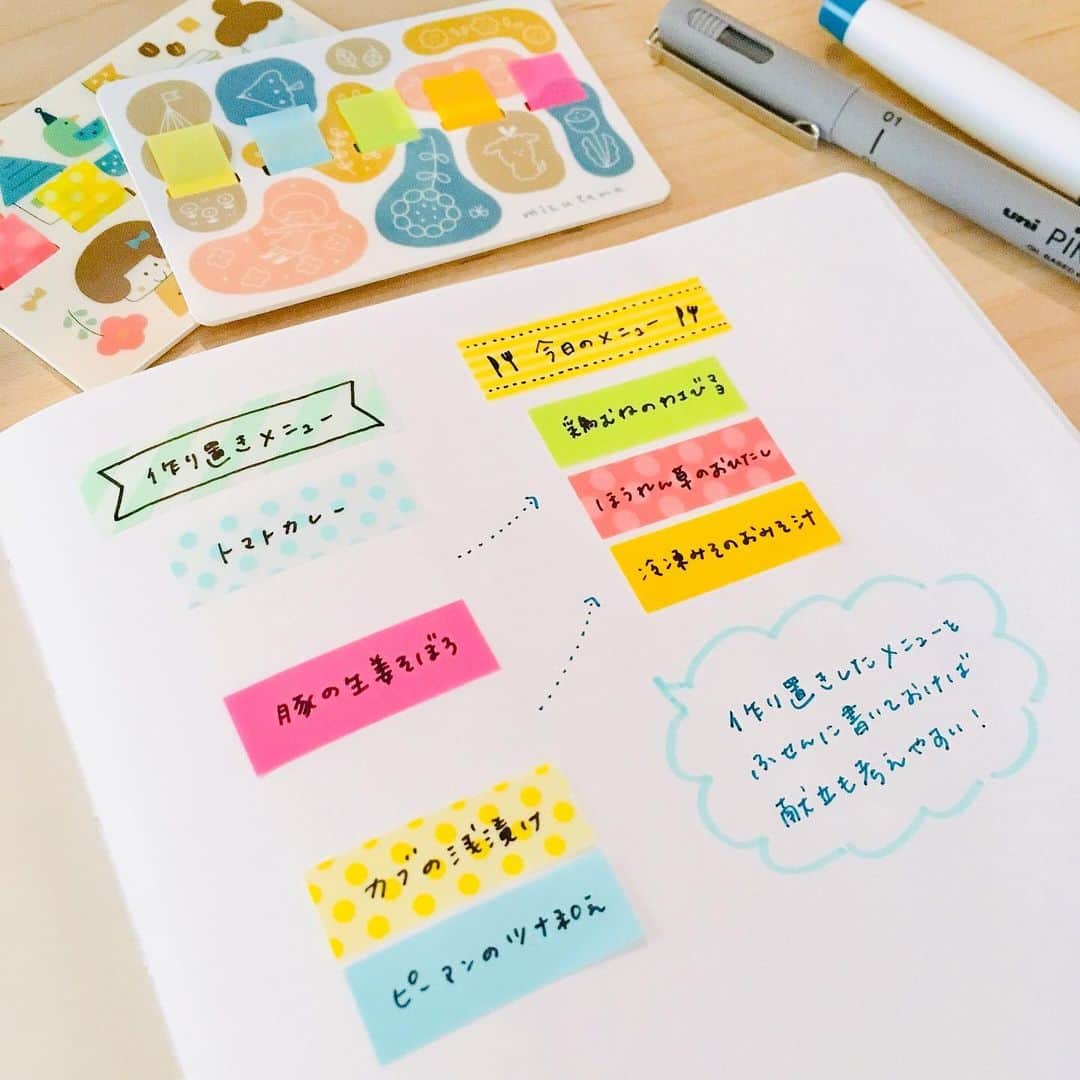 mizutama
01
uni
PIN
OIL BASED
作り置きメニュー
トマトカレー
豚の生姜そぼろ
カブの浅漬け
ピーマンのツナ和え
今日のメニュー
鶏むねのわさびマヨ
ほうれん草のおひたし
冷凍みそのおみそ汁
作り置きしたメニューを
ふせんに書いておけば
献立も考えやすい!